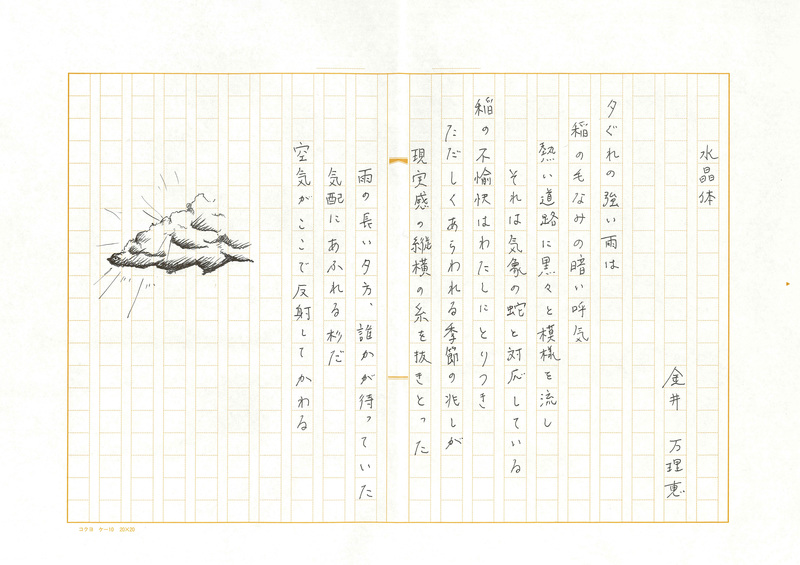 水晶体
金井 万理恵
夕ぐれの強い雨は
稲の毛なみの暗い呼気
熱い道路に黒々と模様を流し
それは気象の蛇と対応している
稲の不愉快はわたしにとりつき
ただしくあらわれる季節の兆しが
現実感の縦横の糸を抜きとった
雨の長い夕方、誰かが待っていた
気配にあふれる杉だ
空気がここで反射してかわる
コクヨ ケー10 20×20